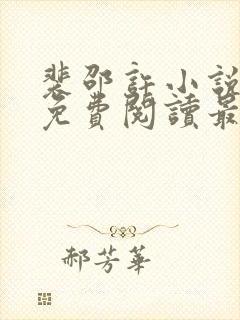 裴邵許小說
免費閱讀最
郝芳華